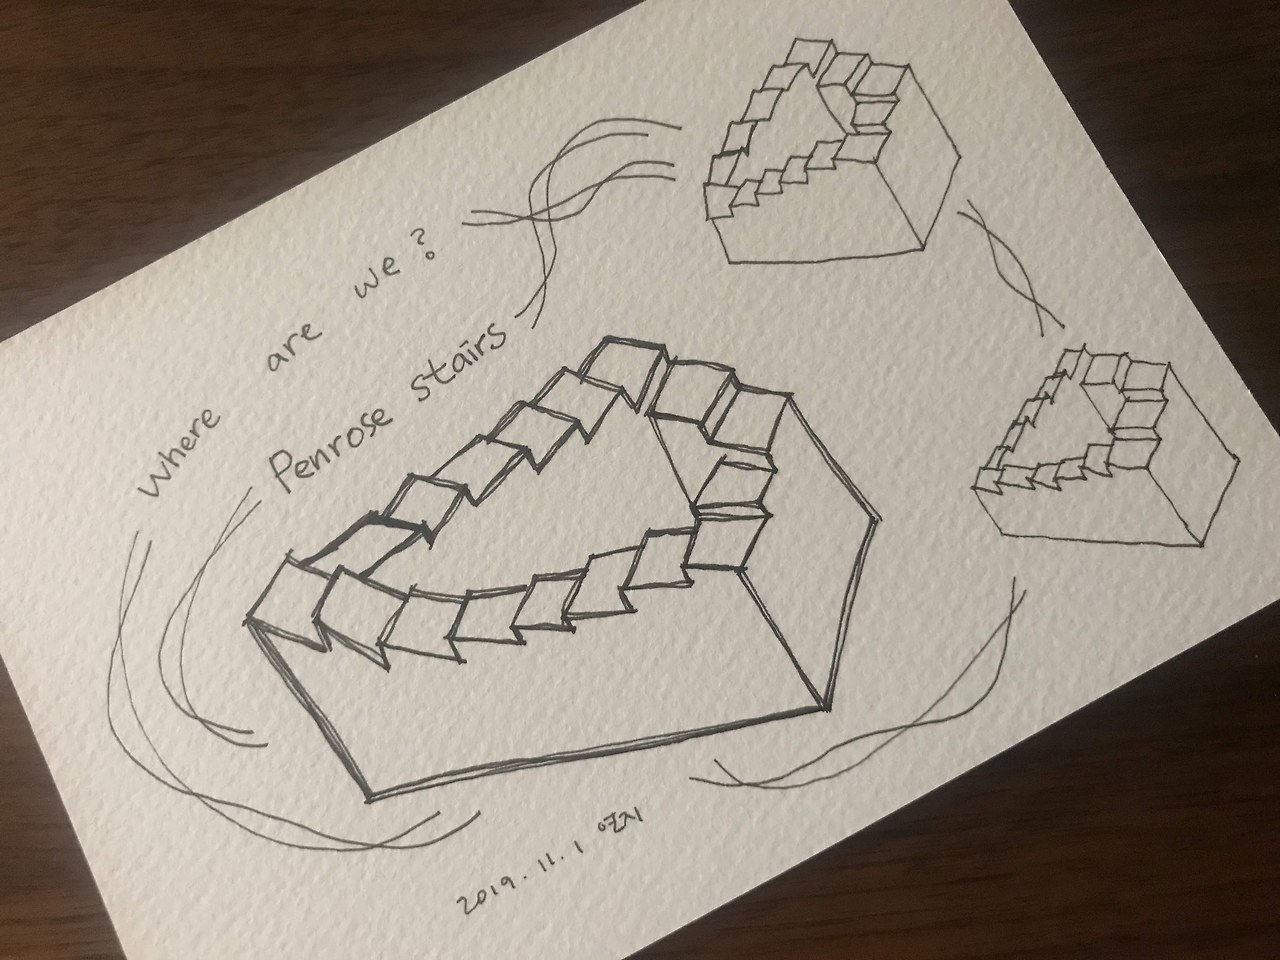 where are we?
Penrose stairs
2019. 11. 1 연지